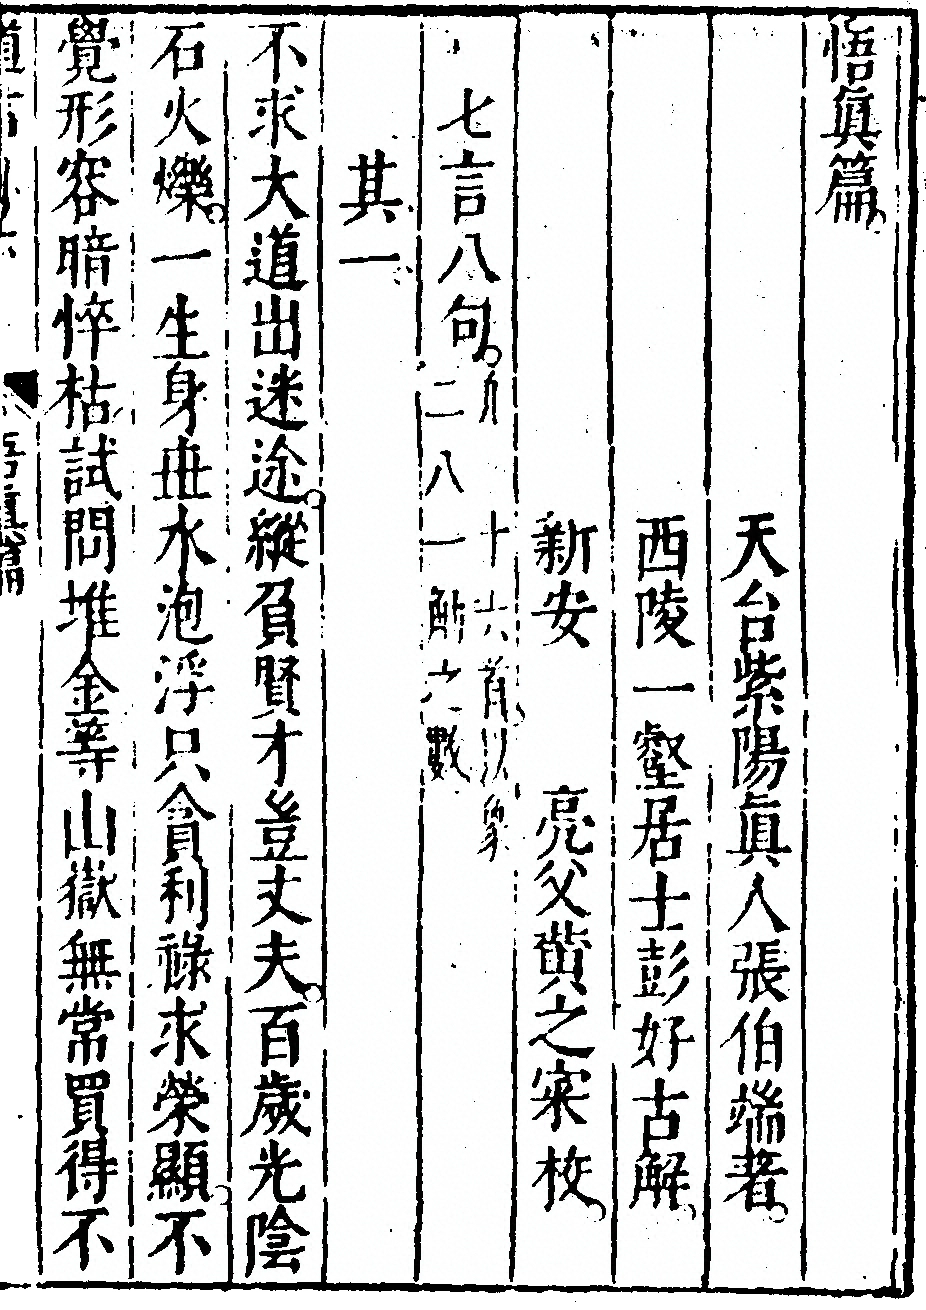 悟眞篇
天台紫陽眞人張伯端著
西陵一壑居士彭好古解
新安　亮父黃之寀校
七言八句
凡十六首以象
二八一觔之數
其一
不求大道出迷途縱負賢才豈丈夫百歲光陰
石火爍一生身丗水泡浮只貪利祿求榮顯不
覺形容暗悴枯試問堆金等山嶽無常買得不
悟眞篇